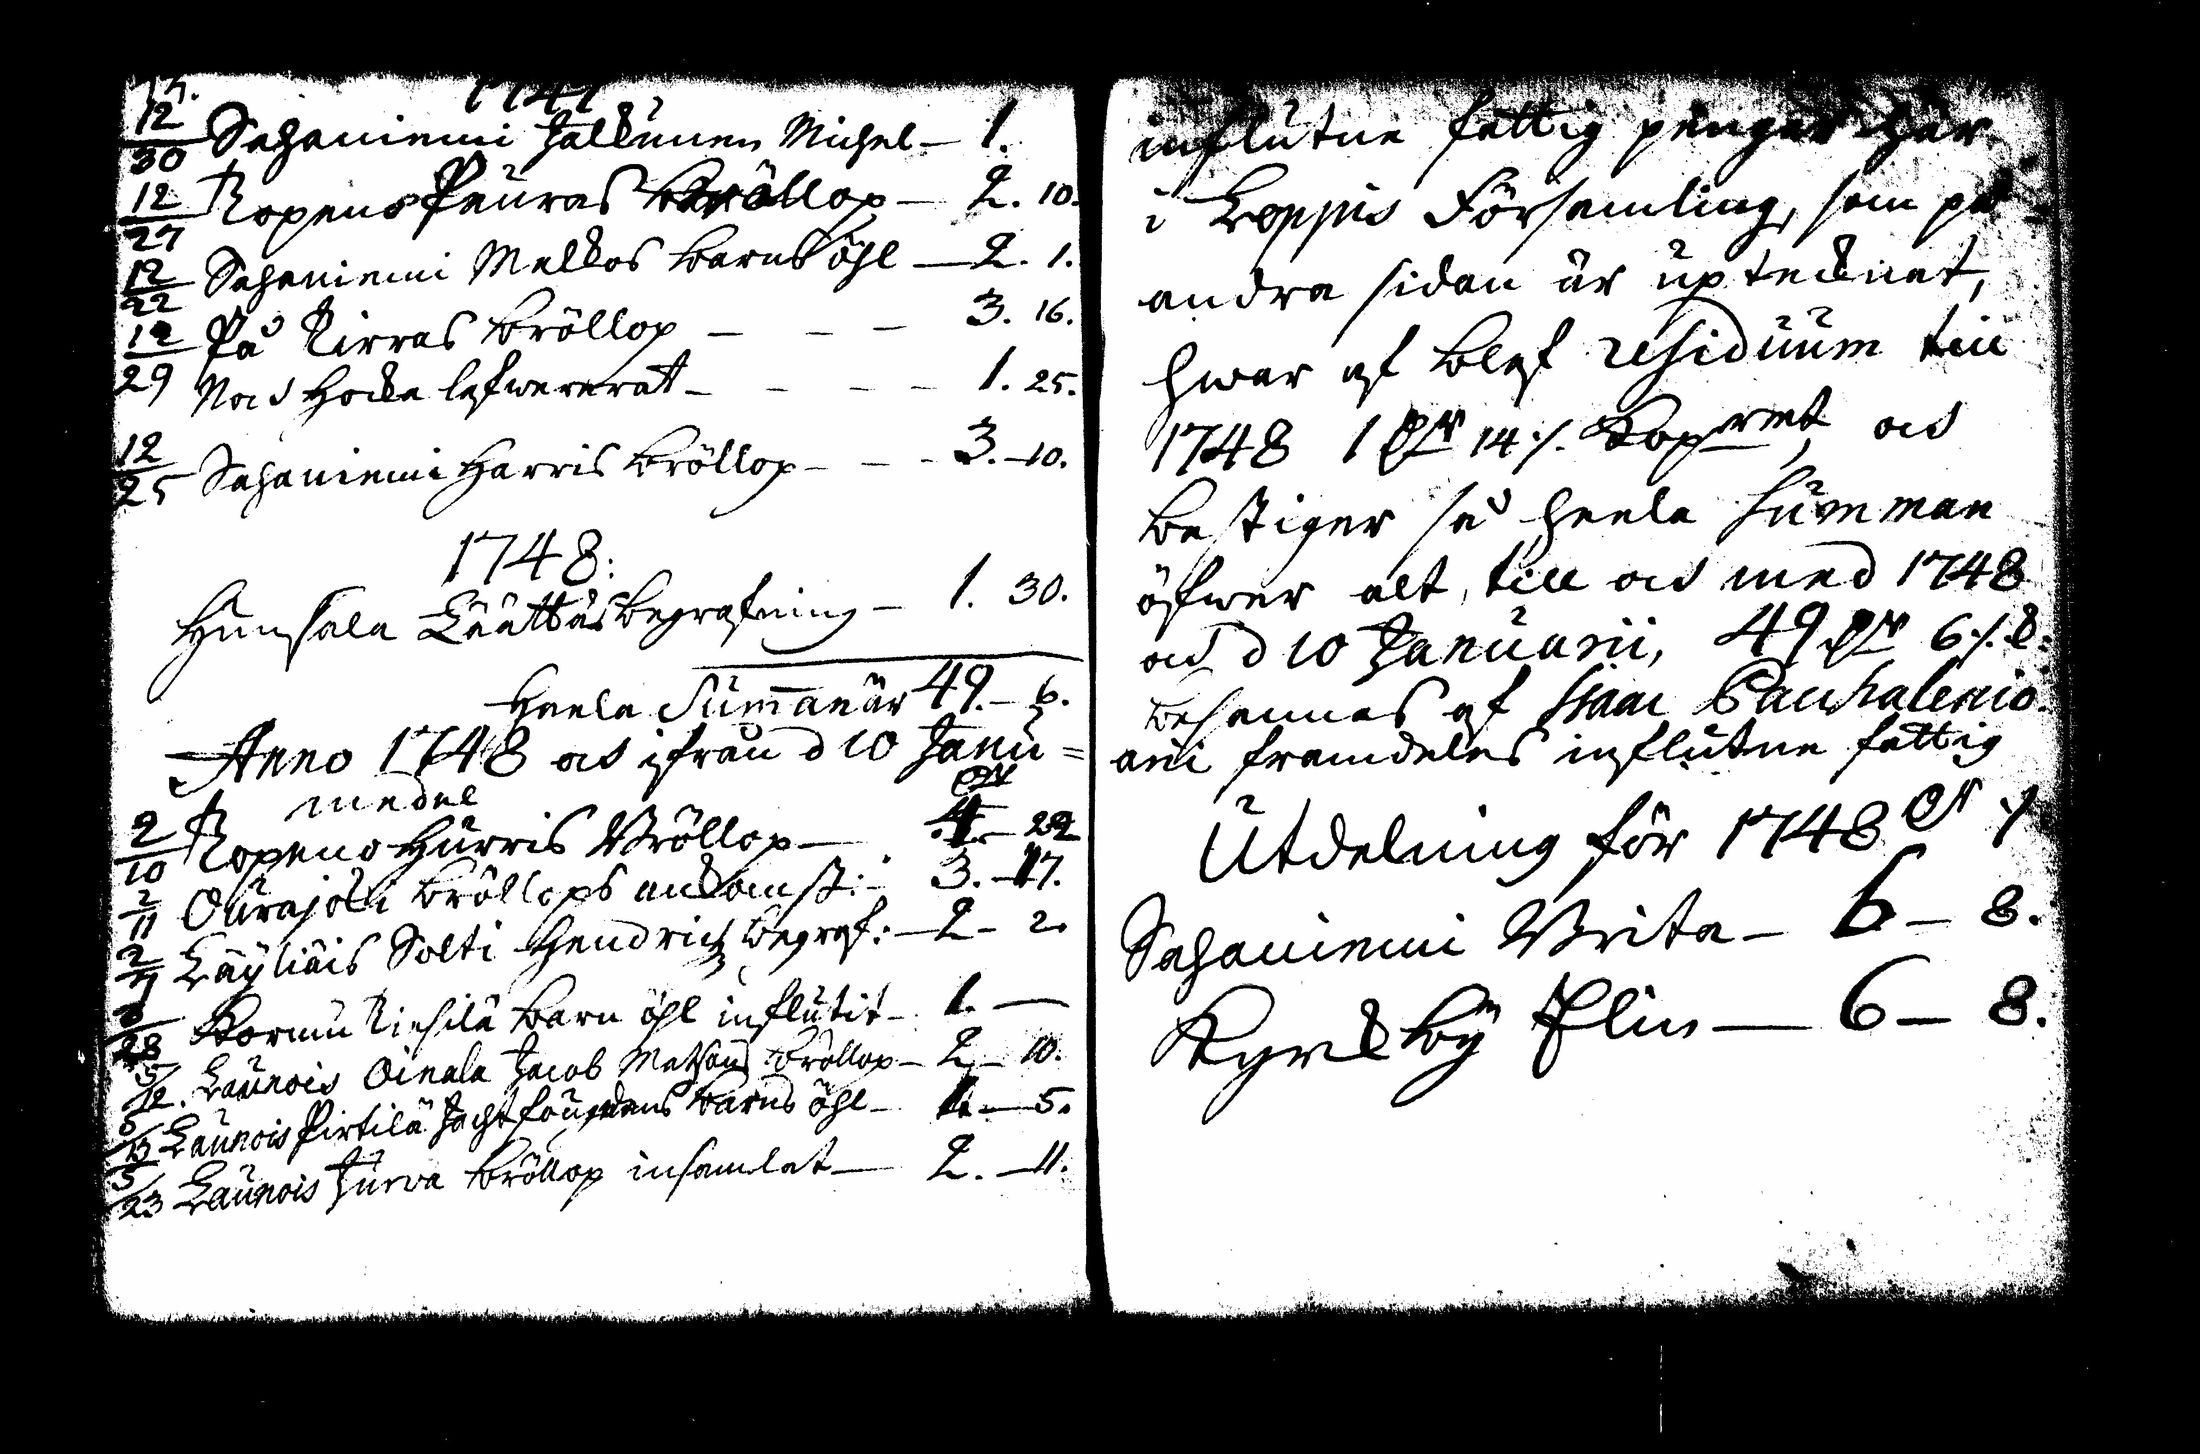 1747
12/30 Sahaniemi Halkunen Michel — 1.
12/27 Ropeno Peuras Bröllop — 2. 10.
12/22 Sahaniemi Malkos barns öhl — 2. 1.
12/29 På Kirras bröllop — — — 3. 16.
Noch Hocka lefwererat — — — 1. 25.
12/25 Sahaniemi Harris bröllop — — 3. — 10.
1748:
Hunsala Läättäs begrafning — 1. 30.
Heela Summan är 49. — 6.
Anno 1748 och ifrån d 10 Janu=
2/10 Ropeno Hurris Bröllop — 4. — 22
2/11 Ourajoki bröllops ankomst: — 3. — 17.
Läyliäis Solti Hendrichs begraf: — 2 — 2.
28 Kormu Kiesilä barn öhl influtit — 1. —
5/12. Launois Oinala Jacob Matssons bröllop — 2 — 10.
Launois Pirtilä Jachtfougdens barns öhl — 1. — 5.
5/23 Launois Jurva bröllop insamlat — 2. — 11.
influtne fattig penger här
i Loppis Församling, som på
andra sidan är uptecknat,
hwar af blef residuum till
1748 1 Dlr 14 /. Kopmt, och
bestiger så heela Summan
öfwer alt, till och med 1748
och d 10 Januarii, 49 Dlr 6 /. k:
bekennes af Isaac Pacchalenio.
arii framdeles influtne fattig
medel
Utdelning för 1748
Sahaniemi Brita — 6 — 8.
Kyrkby Elin — 6 — 8.